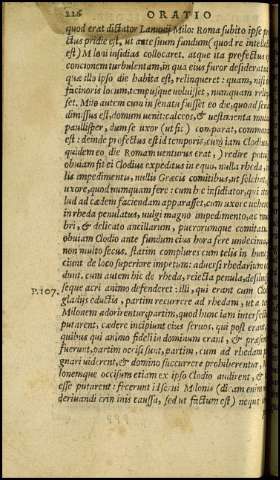 226 ORATIO
quod erat dictator Lanuuij Milo: Roma subito ipse pro
ctus pridie est, ut ante suum fundum (quod re intelle
est) Miloni insidias collocaret. atque ita profectus
concionem turbulentam, in qua eius furor desideratus
quæ illo ipso die habita est, relinqueret: quam, nisi
facinoris locum, tempusque uoluisset, nunquam reli
set. Milo autem cum in senatu fuisset eo die, quoad sen
dimissus est, domum uenit: calceos, & uestimenta
paullisper, dum se uxor (ut fit) comparat, comm
est: deinde profectus est id temporis, cum iam Clodius
quidem eo die Romam uenturus erat,) redire potu
obuiam fit ei Clodius expeditus in equo, nulla rheda,
lis impedimentis, nullis Græcis comitibus, ut solebat,
uxore, quod nunquam fere: cum hic insidiator, qui
lud ad cædem faciendam apparasset, cum uxore
in rheda penulatus, uulgi magno impedimento, ac
bri, & delicato ancillarum, puerorumque comitatu
obuiam Clodio ante fundum eius hora fere undecima
non multo secus. statim complures cum telis in hunc
ciunt de loco superiore impetum: aduersi rhedarium
dunt. cum autem hic de rheda, reiecta penula, desilu
P.107. seque acri animo defenderet: illi, qui erant cum Clo
gladijs eductis, partim recurrere ad rhedam, ut a
Milonem adorirentur, partim, quod hunc iam interfe
putarent, cædere incipiunt eius seruos, qui post erant
quibus qui animo fideli in dominum erant, & præsen
fuerunt, partim occisi sunt, partim, cum ad rhedam
gnari uiderent, & domino succurrere prohiberentur,
lonemque occisum etiam ex ipso Clodio audirent, &
esse putarent: fecerunt id serui Milonis (dicam enim
deriuandi crimin is caussa, sed ut factum est) neque